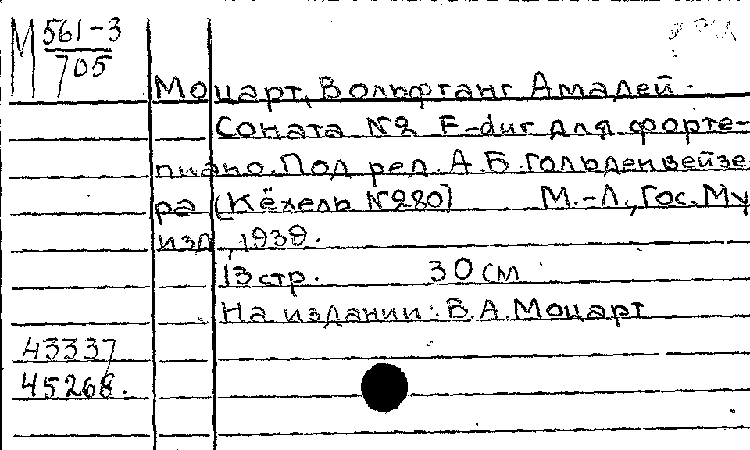 М 561-3
705
Моцарт, Вольфганг Амадей.
Соната №2 F-dur для форте-
пиано. Под ред. А.Б. Гольденвейзе-
ра (Кёхель №280) М.-Л., Гос. Му
изд, 1939.
13 стр. 30 см
На издании: В.А. Моцарт
43337
45268.